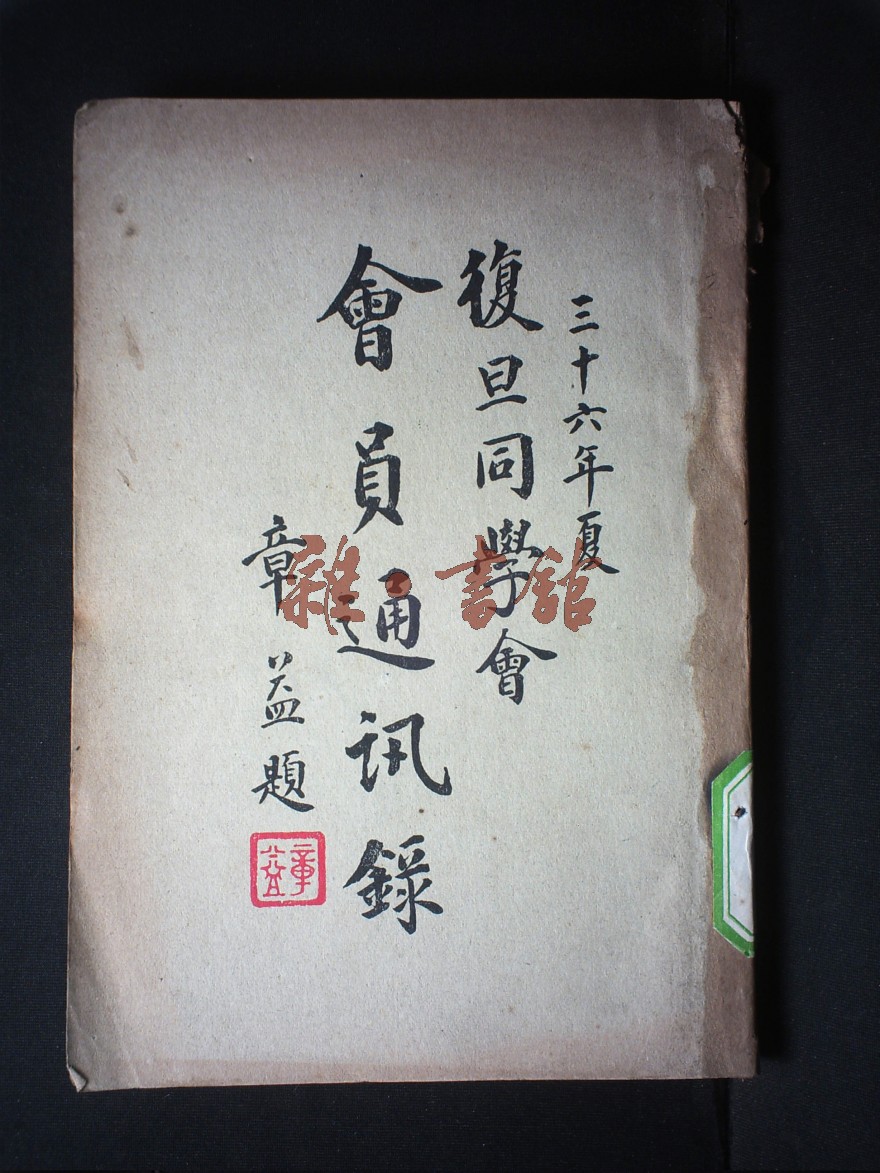 三十六年夏
復旦同學會
會員通訊錄
章益題
章益
雜·書館